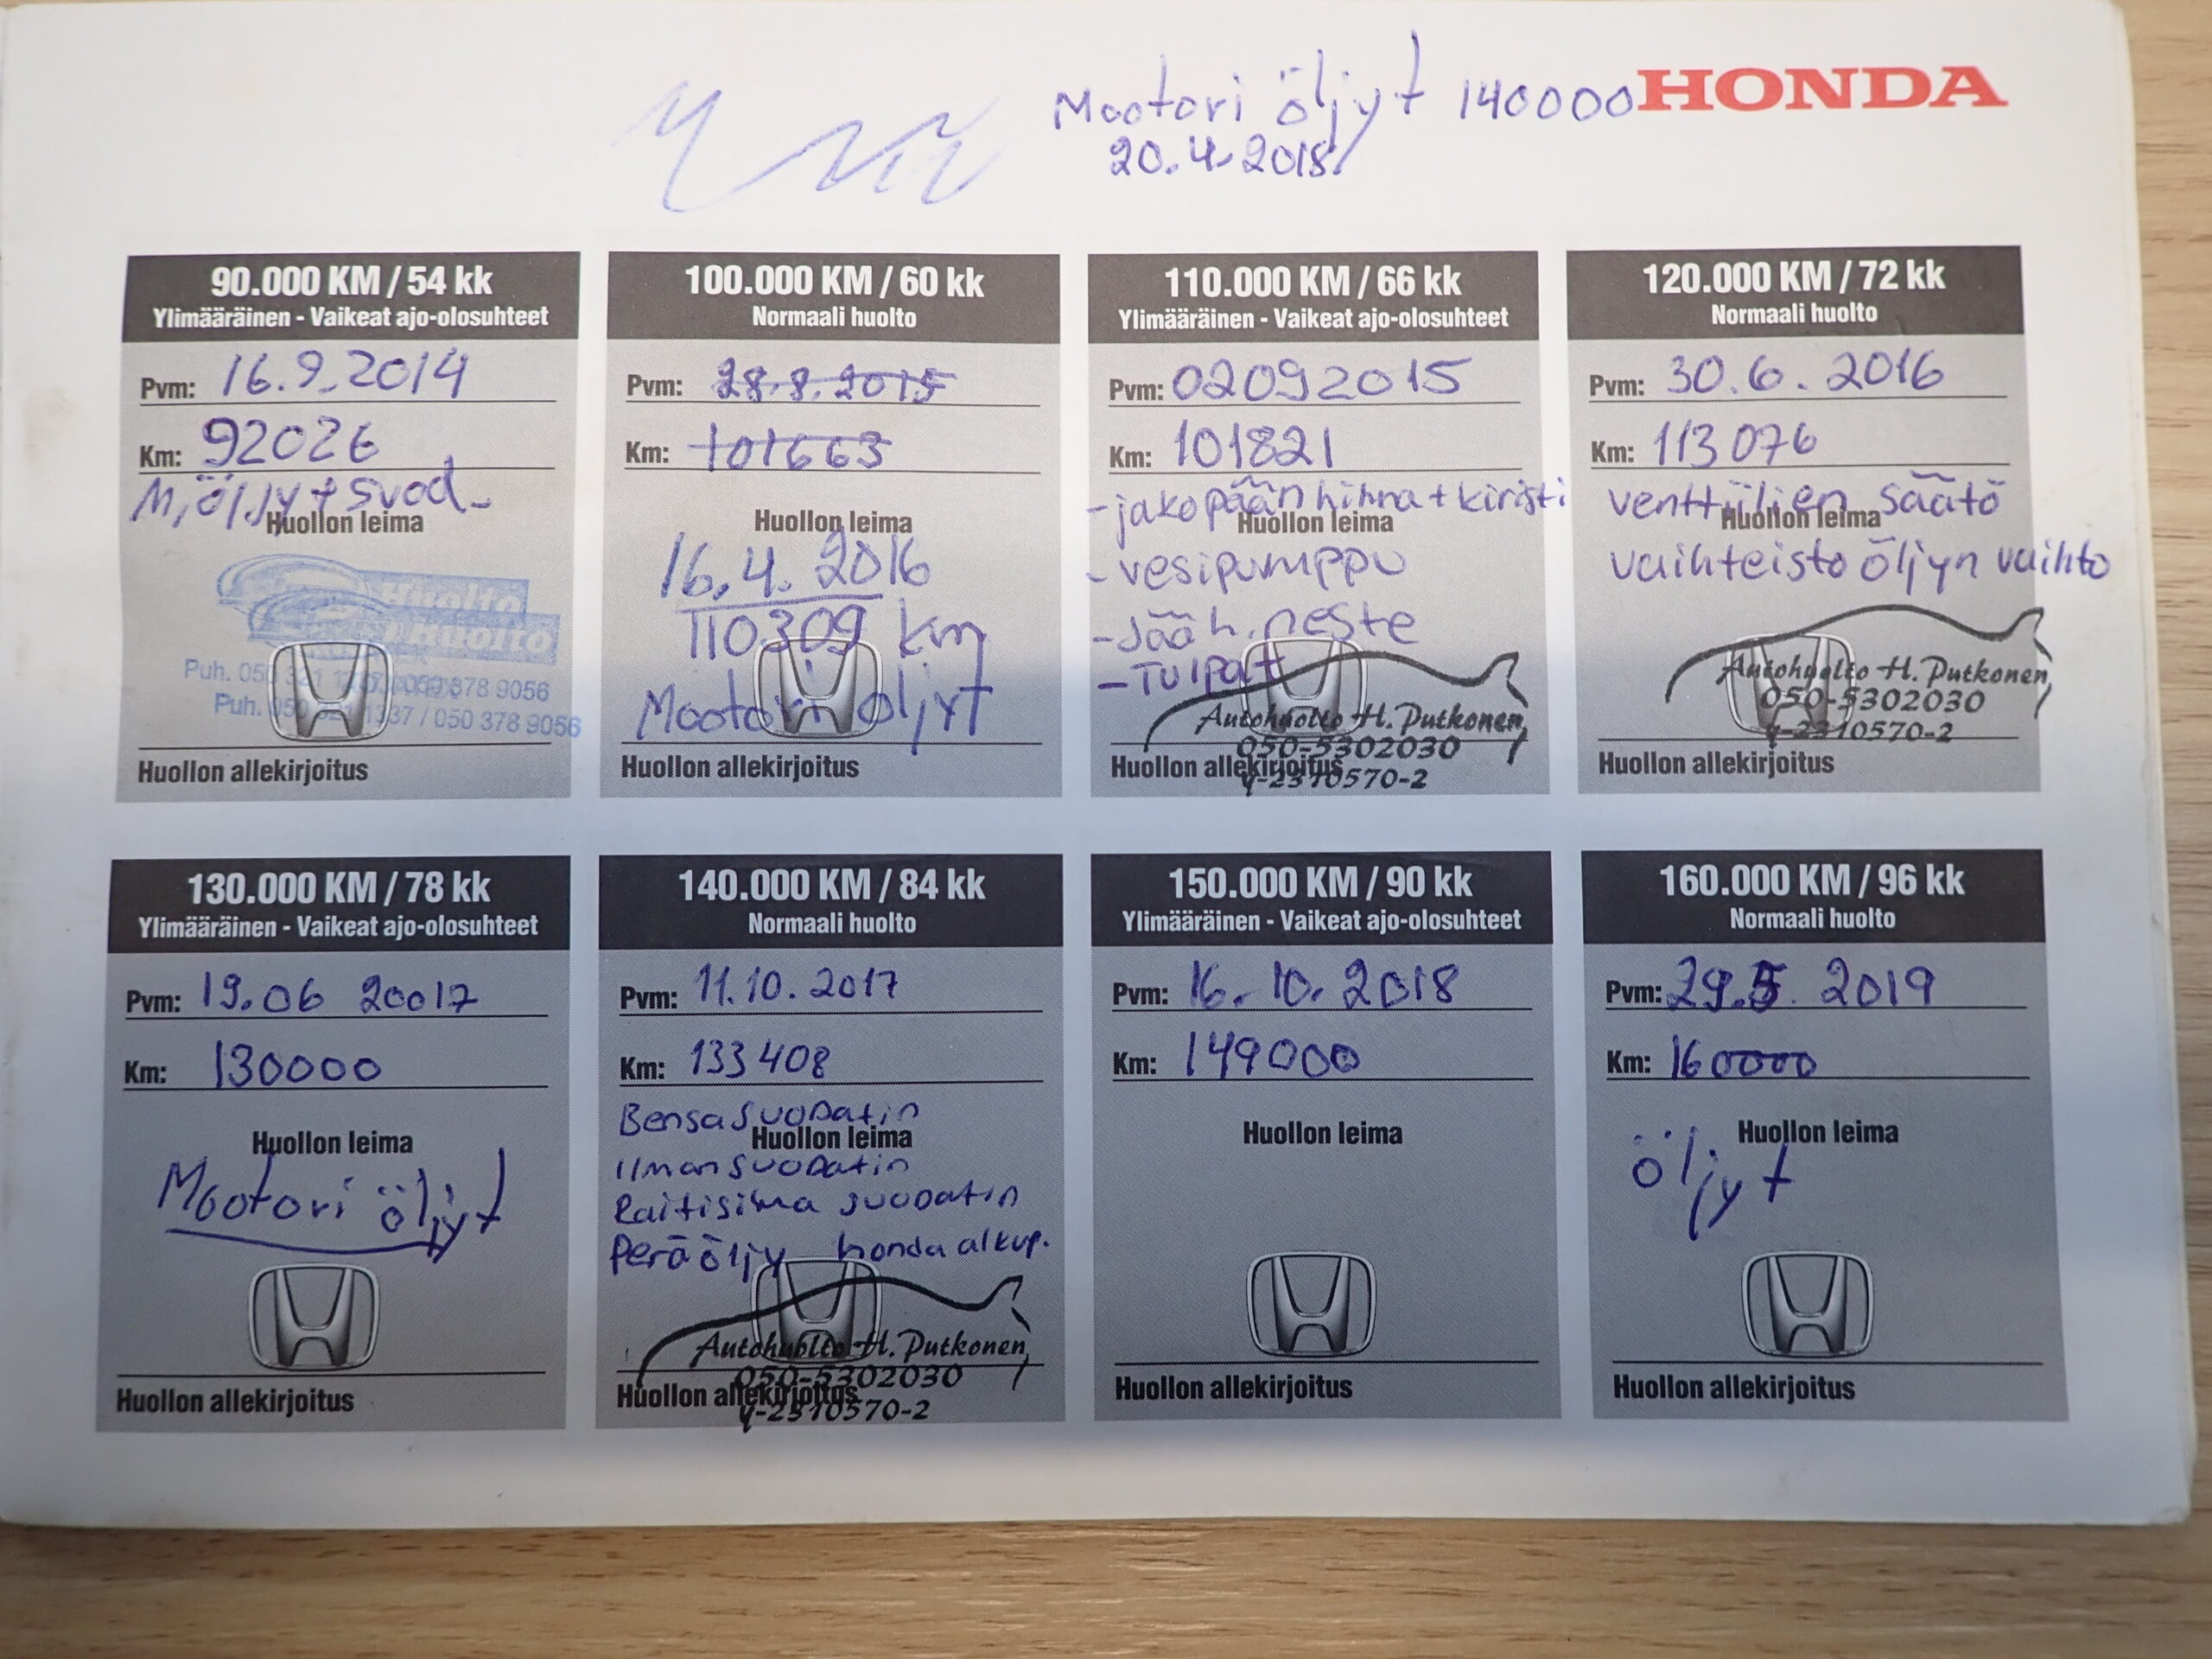 Mootori öljyt 140000
HONDA
20.4.2018
90.000 KM / 54 kk
Ylimääräinen - Vaikeat ajo-olosuhteet
Pvm: 16.9.2014
Km: 92026
M,öljyt+svod-
Huollon leima
Huolto
Huolto
Puh. 050 321 378 9056
Puh. 050 321 1337 / 050 378 9056
Huollon allekirjoitus
100.000 KM / 60 kk
Normaali huolto
Pvm: 28.8.2015
Km: 101663
Huollon leima
16.4.2016
110309 km
Mootori öljyt
Huollon allekirjoitus
110.000 KM / 66 kk
Ylimääräinen - Vaikeat ajo-olosuhteet
Pvm: 02092015
Km: 101821
-jakopään hihna + kiristi
Huollon leima
- vesipumppu
-Jääh.neste
-Tulpat
Autohuolto H. Putkonen
050-5302030
Huollon allekirjoitus
y-2310570-2
120.000 KM / 72 kk
Normaali huolto
Pvm: 30.6.2016
Km: 113076
venttiilien säätö
Huollon leima
vaihteisto öljyn vaihto
Autohuolto H. Putkonen
050-5302030
y-2310570-2
Huollon allekirjoitus
130.000 KM / 78 kk
Ylimääräinen - Vaikeat ajo-olosuhteet
Pvm: 19.06 20017
Km: 130000
Huollon leima
Mootori öljyt
Huollon allekirjoitus
140.000 KM / 84 kk
Normaali huolto
Pvm: 11.10.2017
Km: 133408
Bensasuodatin
Huollon leima
Ilmansuodatin
Raitisilma suodatin
Perä öljy honda alkup.
Autohuolto H. Putkonen
050-5302030
Huollon allekirjoitus
y-2310570-2
150.000 KM / 90 kk
Ylimääräinen - Vaikeat ajo-olosuhteet
Pvm: 16.10.2018
Km: 149000
Huollon leima
Huollon allekirjoitus
160.000 KM / 96 kk
Normaali huolto
Pvm: 29.5. 2019
Km: 160000
Huollon leima
öljyt
Huollon allekirjoitus